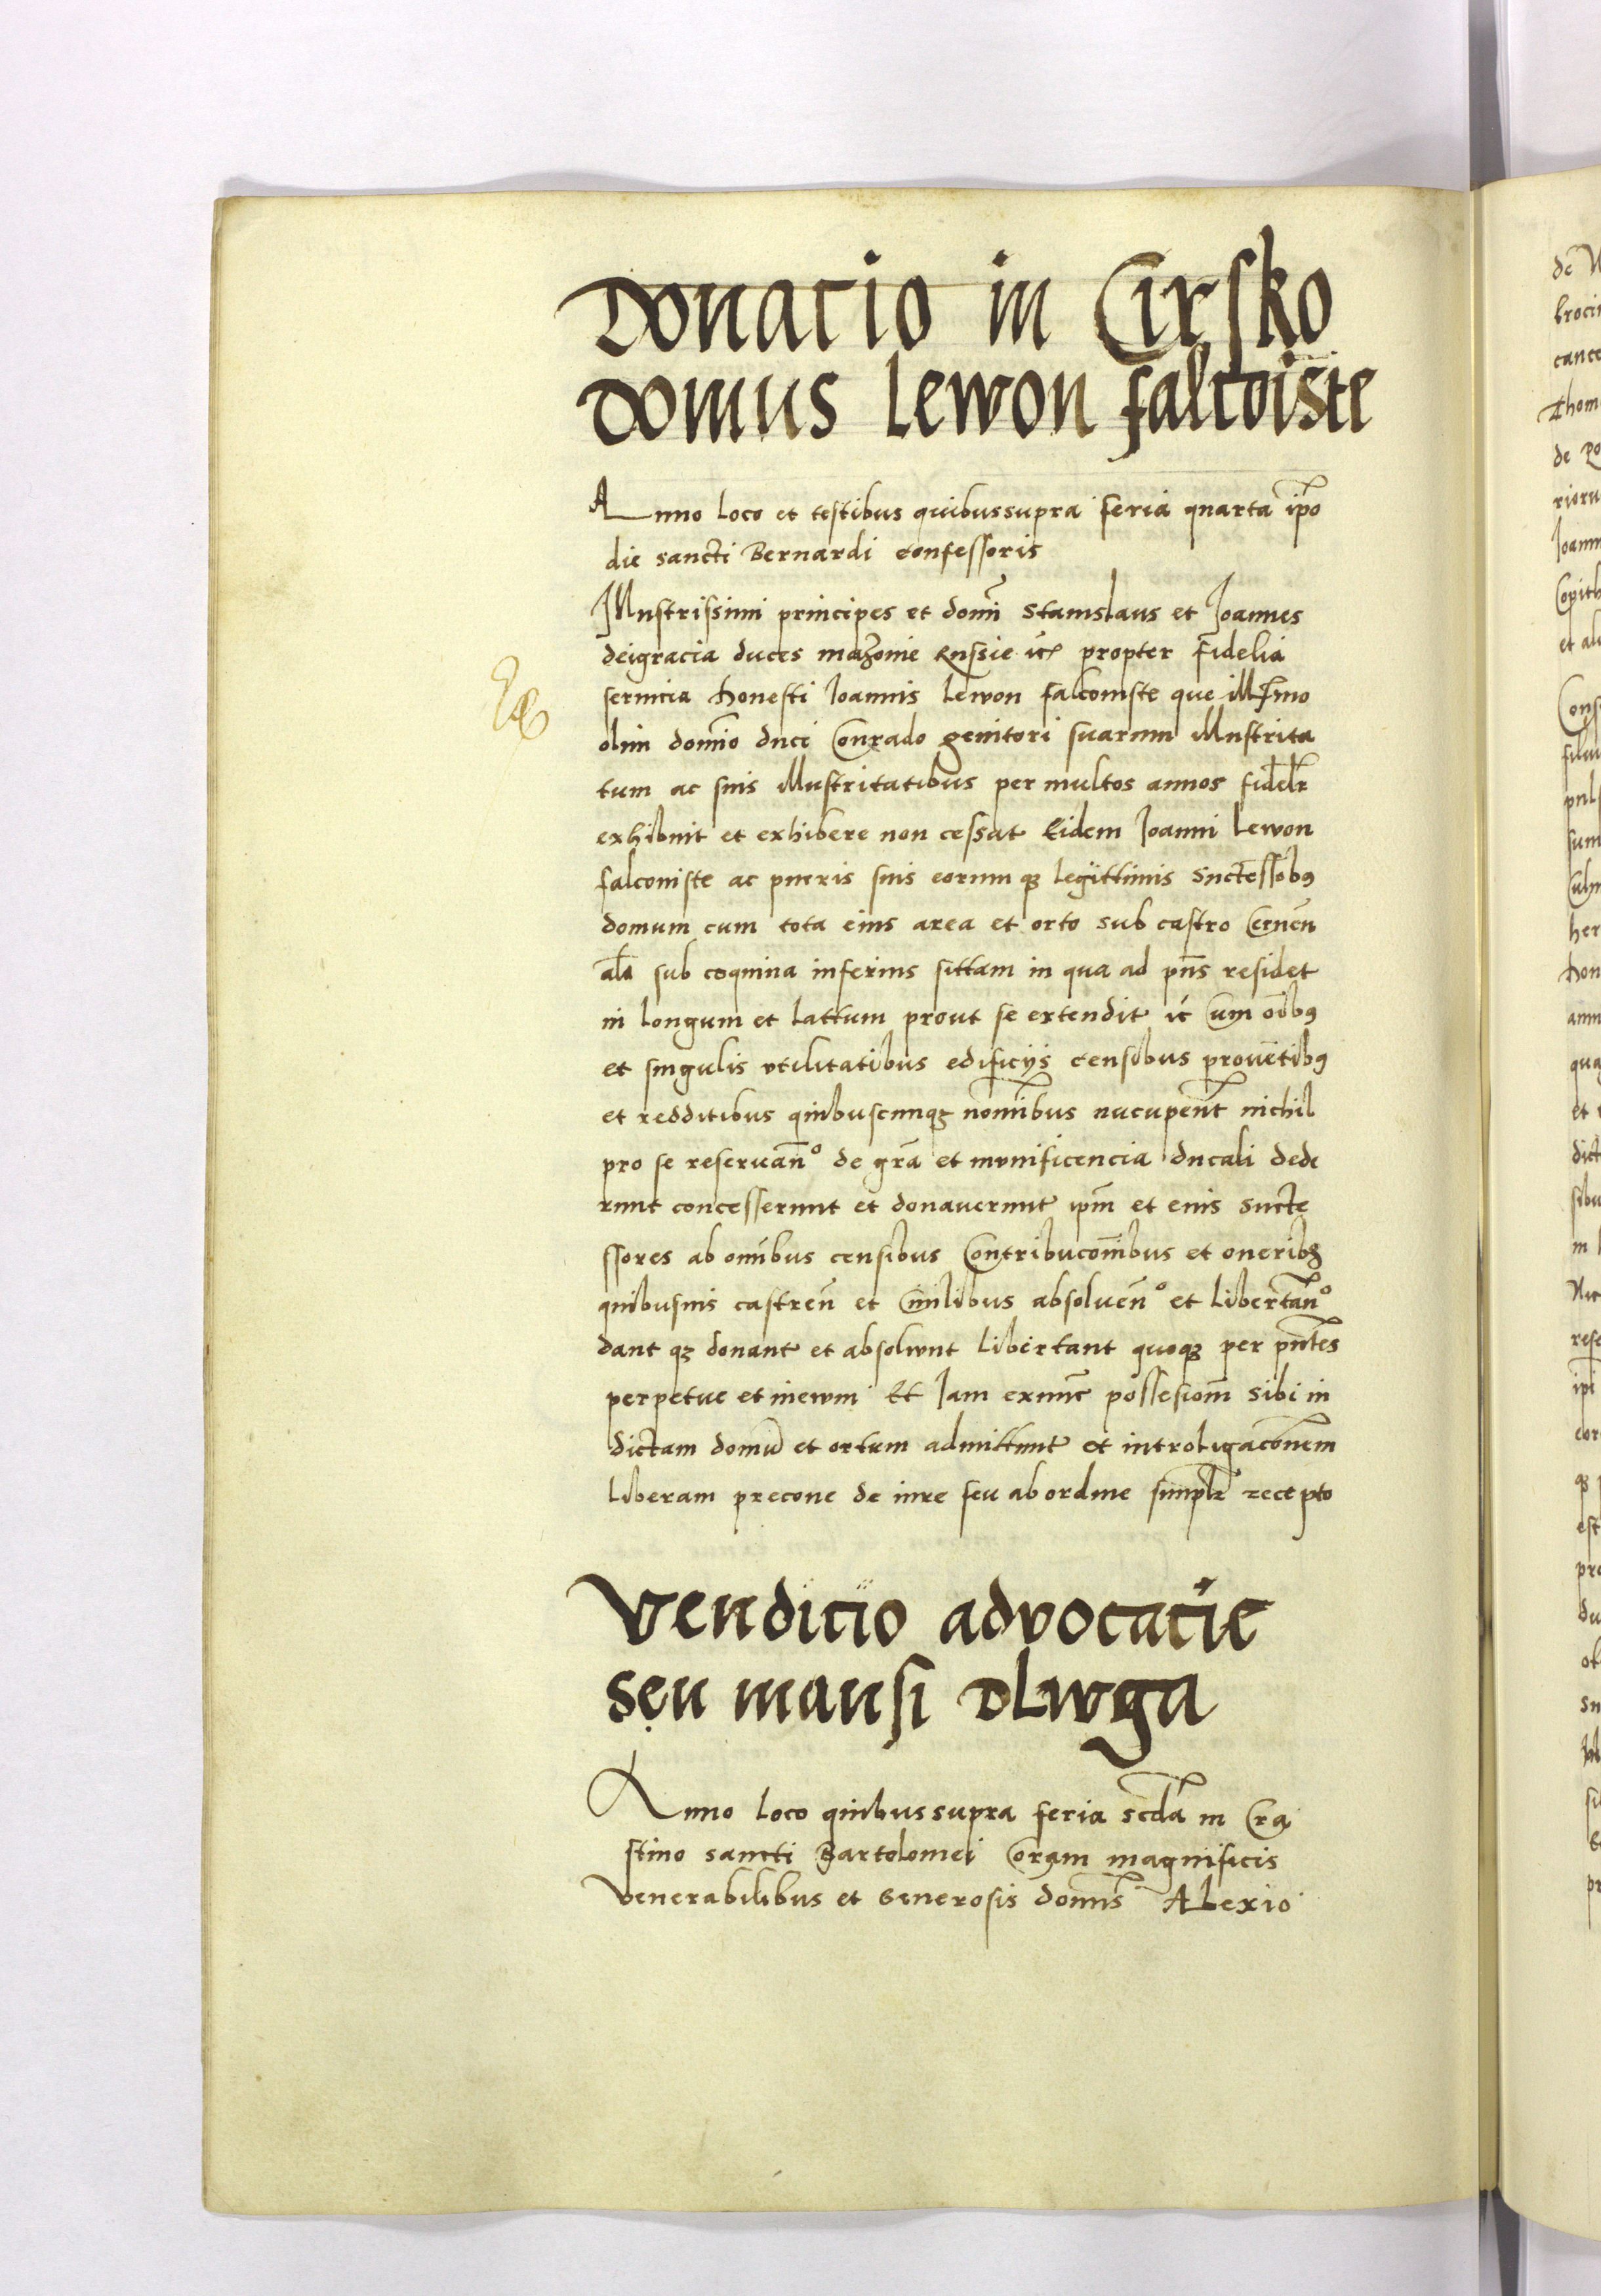 Donacio in Cirsko
domus Lewon falcoiste
Anno loco et testibus quibussupra feria quarta ip̃o
die sancti Bernardi confessoris
Illustrissimi principes et domĩ Stanislaus et Joannes
deigracia duces mazouie Russie ic̃ propter fidelia
seruicia honesti Joannis Lewon falconiste que illsͥmo
olim domĩo duci Conrado genitori suarum illustrita
tum ac suis illustritatibus per multos annos fidelr̃
exhibuit et exhibere non cessat Eidem Joanni Lewon
falconiste ac pueris suis eorumqꝫ legittimis Successõbꝰ
domum cum tota eius area et orto sub castro Cernen̄
al̃s sub coquina inferius sittam in qua ad pn̄s residet
in longum et lattum prout se extendit ic̃ Cum oĩbꝰ
et singulis vtilitatibus edificijs censibus prouẽtibꝰ
et redditibus quibuscunqꝫ nomĩbus nucupent̃ nichil
pro se reseruan̄º de gr̃a et mvnificencia ducali dede
runt concesserunt et donauerunt ip̃m et eius Succe
ssores ab omĩbus censibus Contribucomĩbus et oneribꝫ
quibusuis castren̄ et Ciuilibus absoluen̄º et libertan̄º
dant qꝫ donant et absolwnt libertant quoqꝫ per pñtes
perpetue et inewm Et Jam exnunc possesiom̃ sibi in
dictam domũ et ortum admittunt et introligacõnem
liberam precone de iure seu ab ordine simplr̃ recepto
Vendicio advocacie
seu mansi Dlwga
Anno loco quibussupra feria scd̃a in Cra
stino sancti Bartolomei Coram magnificis
Venerabilibus et Generosis domĩs Alexio